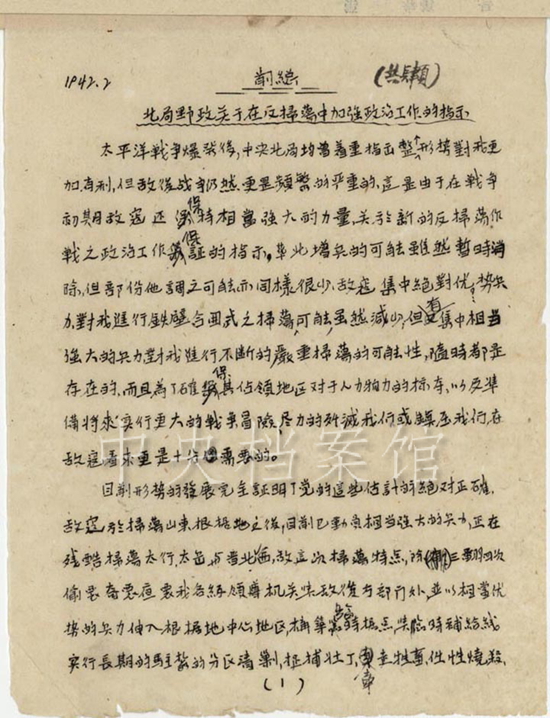 1942.2
前总
(共肆頁)
北局野政关于在反掃蕩中加強政治工作的指示
太平洋战争爆发後,中央北局均曾着重指出整个形勢對我更
加有利,但敌後战争仍然更是頻繁的严重的,這是由于在战争
初期敌寇还保持相當强大的力量,关於新的反掃蕩作
戰之政治工作保証的指示。華北增兵的可能虽然暂时消
除,但部份他調之可能亦同样很少,敌寇集中絕對优势兵
力對我進行鉄壁合囲式之掃蕩可能虽然減少,但集中相当
強大的兵力對我進行不断的嚴重掃蕩的可能性,随時都是
存在的,而且為了確保其佔領地区对于人力物力的掠夺,以及準
備将來实行更大的战争冒險,尽力的歼滅我們或鎮压我們,在
敌寇看來更是十分需要的。
目前形势的發展完全証明了党的這些估計的絕对正確,
敌寇於掃蕩山東根据地之後,目前已動員相当強大的兵力,正在
残酷掃蕩太行、太岳、与晋北西,敌這次掃蕩特点,除三番四次
偷袭奇袭夜袭我各級領導机关与敌後方部门外,並以相當优
势的兵力伸入根据地中心地区,構築据点,架臨時補給綫
实行長期的駐紮的分区清剿,捉捕壮丁,牵牲畜,任性燒殺,
(1)
中央档案馆